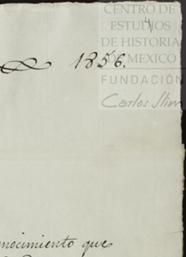 CENTRO DE
ESTUDIOS
DE HISTORIA
DE MEXICO
FUNDACIÓN
Carlos Slim
1856.
nocimiento que